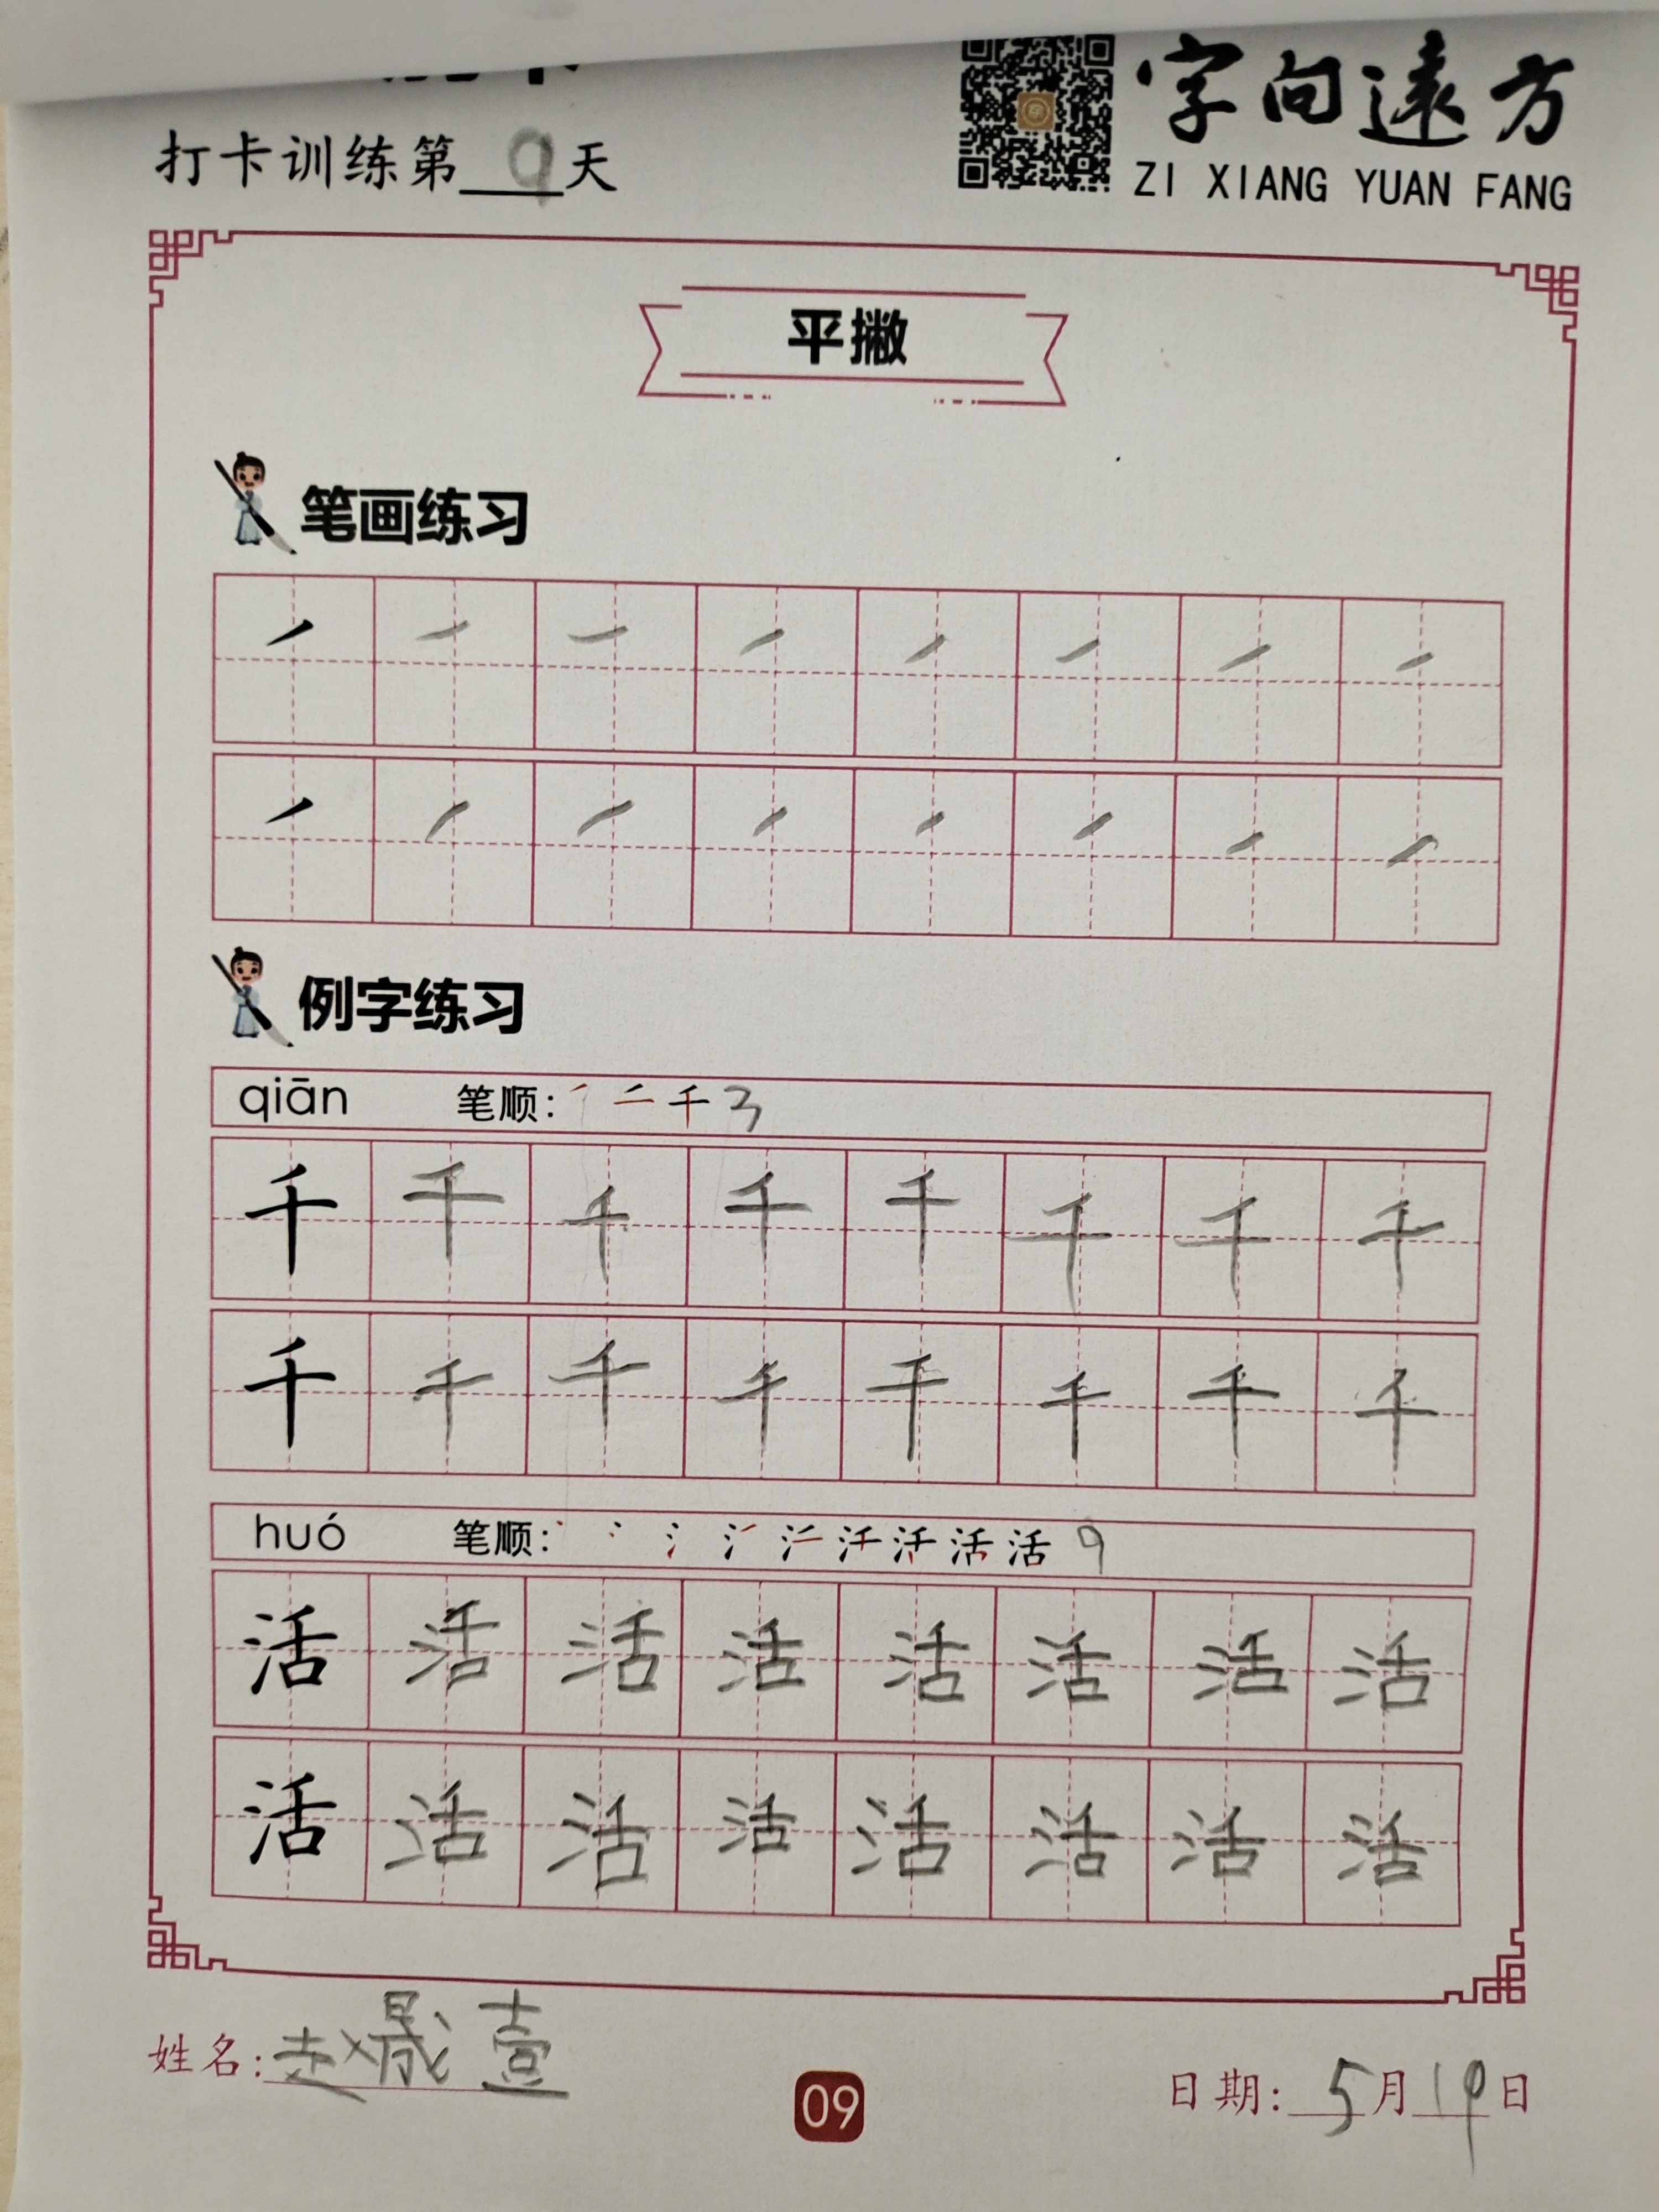 字向遠方
ZI XIANG YUAN FANG
打卡训练第9天
平撇
笔画练习
例字练习
qiān 笔顺: 千 3
千 千 千 千 千 千 千 千
千 千 千 千 千 千 千 千
huó 笔顺: 活 9
活 活 活 活 活 活 活 活
活 活 活 活 活 活 活 活
姓名: 赵晟壹
09
日期: 5月19日